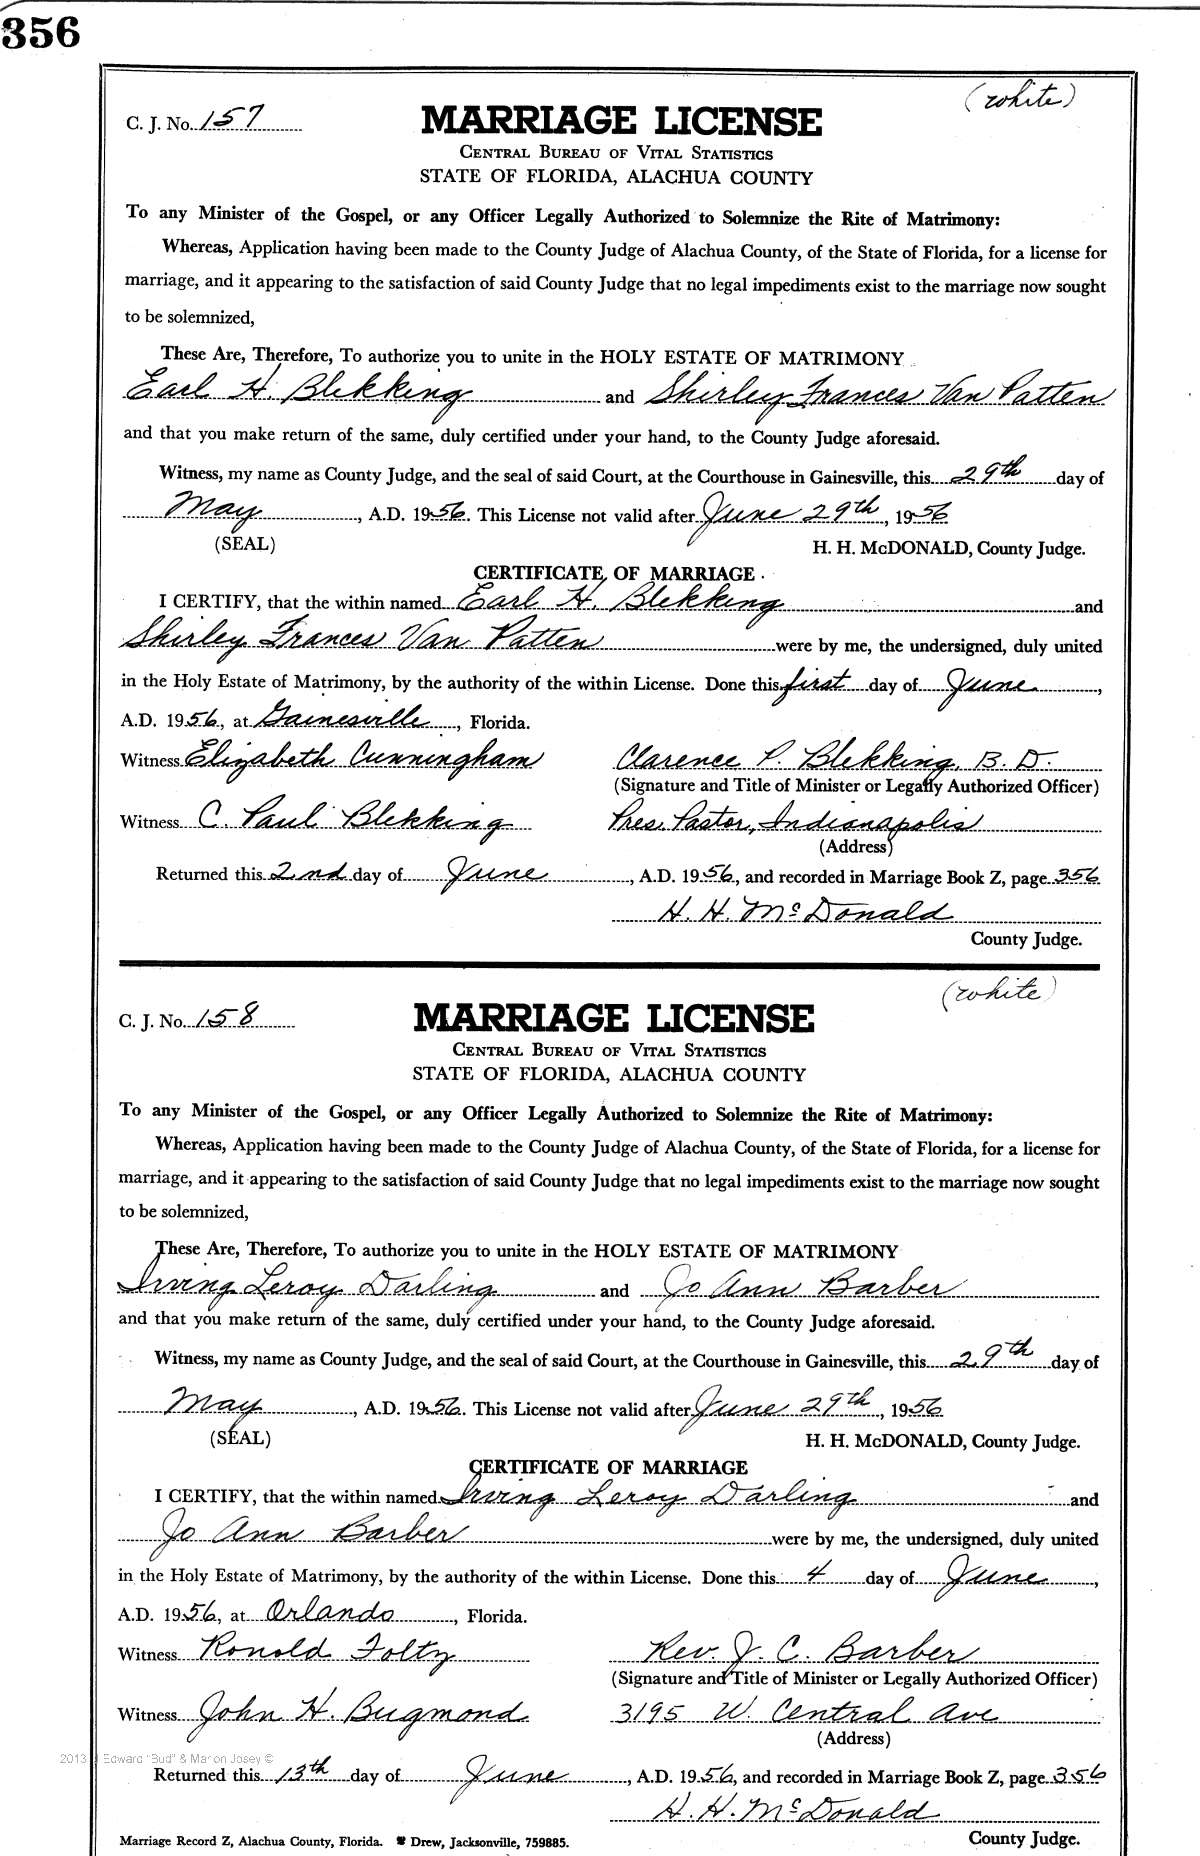 356
(white)
C. J. No. 157 MARRIAGE LICENSE
CENTRAL BUREAU OF VITAL STATISTICS
STATE OF FLORIDA, ALACHUA COUNTY
To any Minister of the Gospel, or any Officer Legally Authorized to Solemnize the Rite of Matrimony:
Whereas, Application having been made to the County Judge of Alachua County, of the State of Florida, for a license for
marriage, and it appearing to the satisfaction of said County Judge that no legal impediments exist to the marriage now sought
to be solemnized,
These Are, Therefore, To authorize you to unite in the HOLY ESTATE OF MATRIMONY
Earl H. Blekking and Shirley Frances Van Patten
and that you make return of the same, duly certified under your hand, to the County Judge aforesaid.
Witness, my name as County Judge, and the seal of said Court, at the Courthouse in Gainesville, this 29th day of
May, A.D. 1956. This License not valid after June 29th, 1956
(SEAL) H. H. McDONALD, County Judge.
CERTIFICATE OF MARRIAGE
I CERTIFY, that the within named Earl H. Blekking and
Shirley Frances Van Patten were by me, the undersigned, duly united
in the Holy Estate of Matrimony, by the authority of the within License. Done this first day of June,
A.D. 1956, at Gainesville, Florida.
Witness Elizabeth Cunningham Clarence P. Blekking, B. D.
(Signature and Title of Minister or Legally Authorized Officer)
Witness C. Paul Blekking Pres. Pastor, Indianapolis
(Address)
Returned this 2nd day of June, A.D. 1956, and recorded in Marriage Book Z, page 356
H. H. McDonald
County Judge.
(white)
C. J. No. 158 MARRIAGE LICENSE
CENTRAL BUREAU OF VITAL STATISTICS
STATE OF FLORIDA, ALACHUA COUNTY
To any Minister of the Gospel, or any Officer Legally Authorized to Solemnize the Rite of Matrimony:
Whereas, Application having been made to the County Judge of Alachua County, of the State of Florida, for a license for
marriage, and it appearing to the satisfaction of said County Judge that no legal impediments exist to the marriage now sought
to be solemnized,
These Are, Therefore, To authorize you to unite in the HOLY ESTATE OF MATRIMONY
Irving Leroy Darling and Jo Ann Barber
and that you make return of the same, duly certified under your hand, to the County Judge aforesaid.
Witness, my name as County Judge, and the seal of said Court, at the Courthouse in Gainesville, this 29th day of
May, A.D. 1956. This License not valid after June 29th, 1956
(SEAL) H. H. McDONALD, County Judge.
CERTIFICATE OF MARRIAGE
I CERTIFY, that the within named Irving Leroy Darling and
Jo Ann Barber were by me, the undersigned, duly united
in the Holy Estate of Matrimony, by the authority of the within License. Done this 4 day of June,
A.D. 1956, at Orlando, Florida.
Witness Ronold Foltz Rev. J. C. Barber
(Signature and Title of Minister or Legally Authorized Officer)
Witness John H. Bugmond 3195 W. Central Ave
(Address)
2013 J Edward "Bud" & Marion Josey ©
Returned this 13th day of June, A.D. 1956, and recorded in Marriage Book Z, page 356
H. H. McDonald
Marriage Record Z, Alachua County, Florida. Drew, Jacksonville, 759885. County Judge.